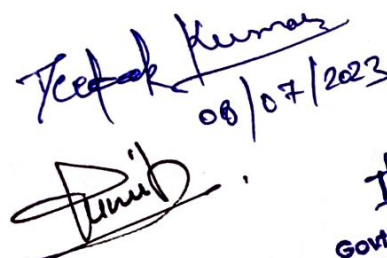 Deepak Kumar
08/07/2023
Sumit
I
GOVT